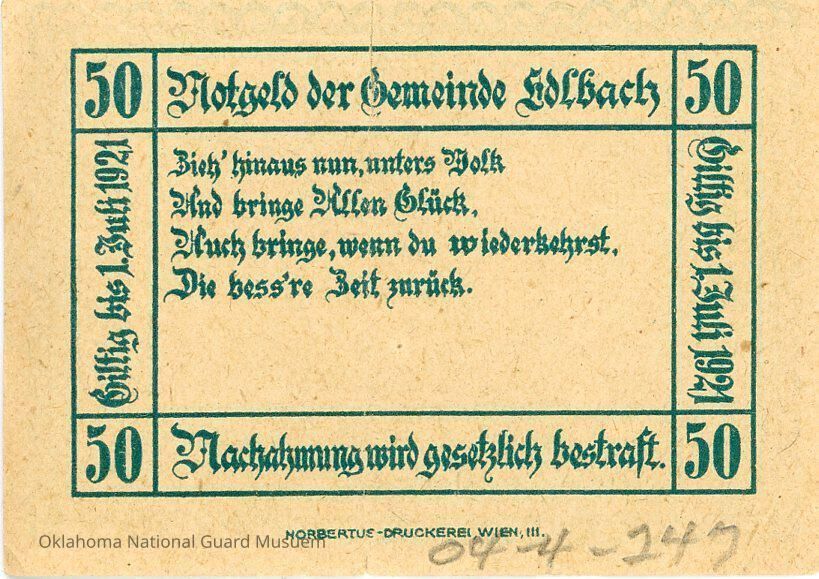 50 Notgeld der Gemeinde Edlbach 50
Giltig bis 1. Juli 1921
Zieh' hinaus nun, unters Volk
Und bringe Allen Glück,
Auch bringe, wenn du wiederkehrst,
Die bess're Zeit zurück.
Giltig bis 1. Juli 1921
50 Nachahmung wird gesetzlich bestraft. 50
NORBERTUS-DRUCKEREI, WIEN, III.
Oklahoma National Guard Musuem
04-4-247